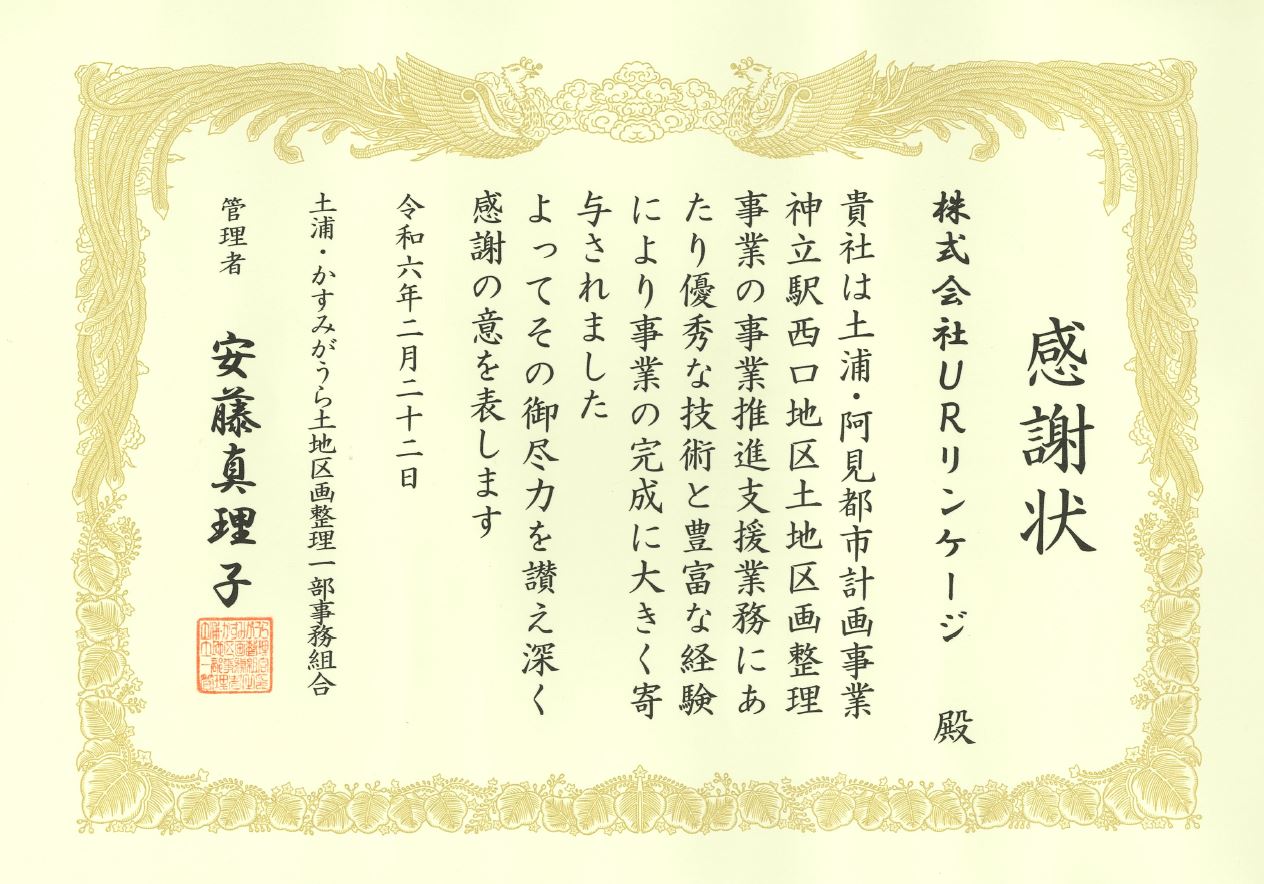 感謝状
株式会社URリンケージ 殿
貴社は土浦・阿見都市計画事業
神立駅西口地区土地区画整理
事業の事業推進支援業務にあ
たり優秀な技術と豊富な経験
により事業の完成に大きく寄
与されました
よってその御尽力を讃え深く
感謝の意を表します
令和六年二月二十二日
土浦・かすみがうら土地区画整理一部事務組合
管理者 安藤真理子